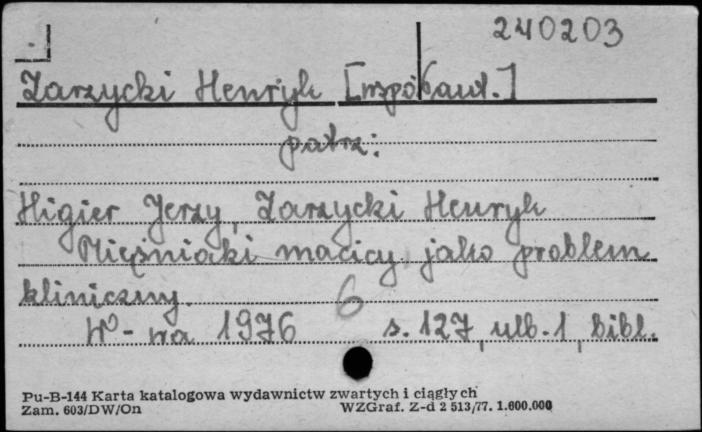 240203
Zarzycki Henryk [współaut.]
patrz:
Higier Jerzy, Zarzycki Henryk
Mięśniaki macicy jako problem
kliniczny. 6
W-wa 1976 s. 127, ulb. 1, bibl.
Pu-B-144 Karta katalogowa wydawnictw zwartych i ciągłych
Zam. 603/DW/On WZGraf. Z-d 2 513/77. 1.600.000